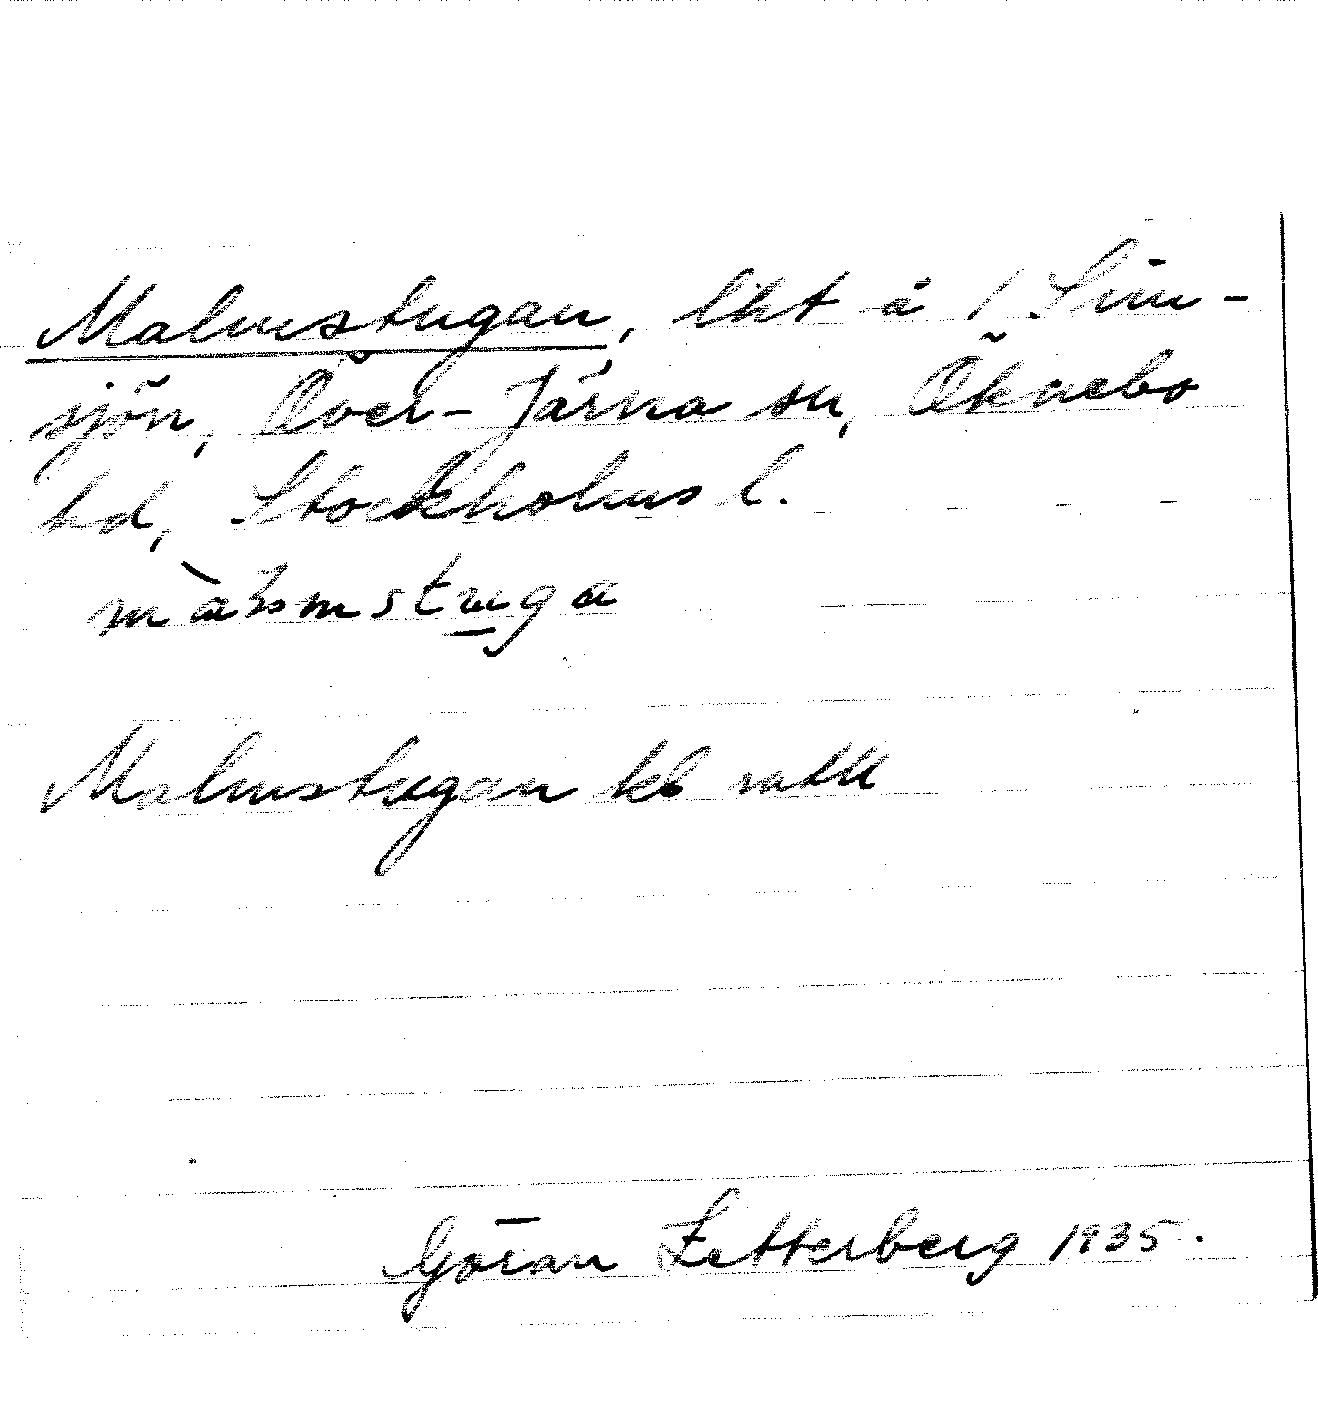 Malmstugan, lht å 1 Sim-
sjön, Över-Järna sn, Öknebo
hd, Stockholms l.
màlmstuga
Malmstugan kb
Göran Zetterberg 1935.